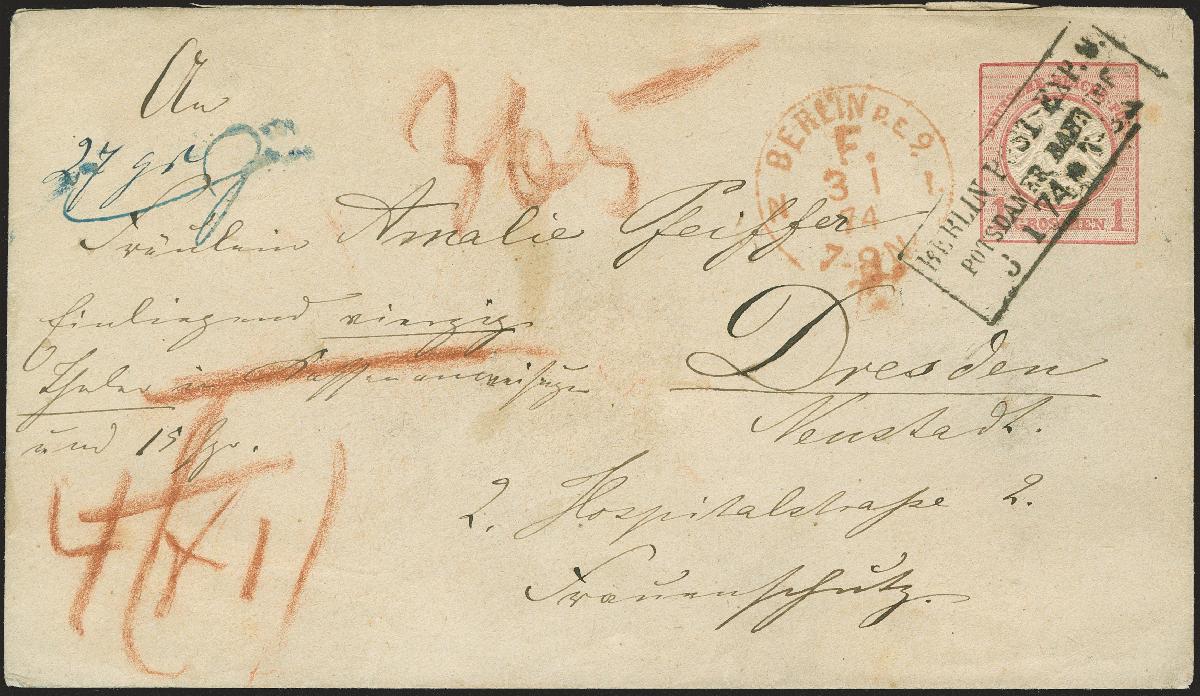 An
27 gr
365
Fräulein Amalie Pfeiffer
Einliegend vierzig
Thaler in Kassenanweisungen
und 15 Sgr.
Dresden
Neustadt.
2. Hospitalstraße 2.
Frauenschutz.
N BERLIN P.E. 9.
F.
3 1
74
7-9N
BERLIN POST-EXP.
POTSDAMER BAHNHF
3 1 74
1 GROSCHEN 1